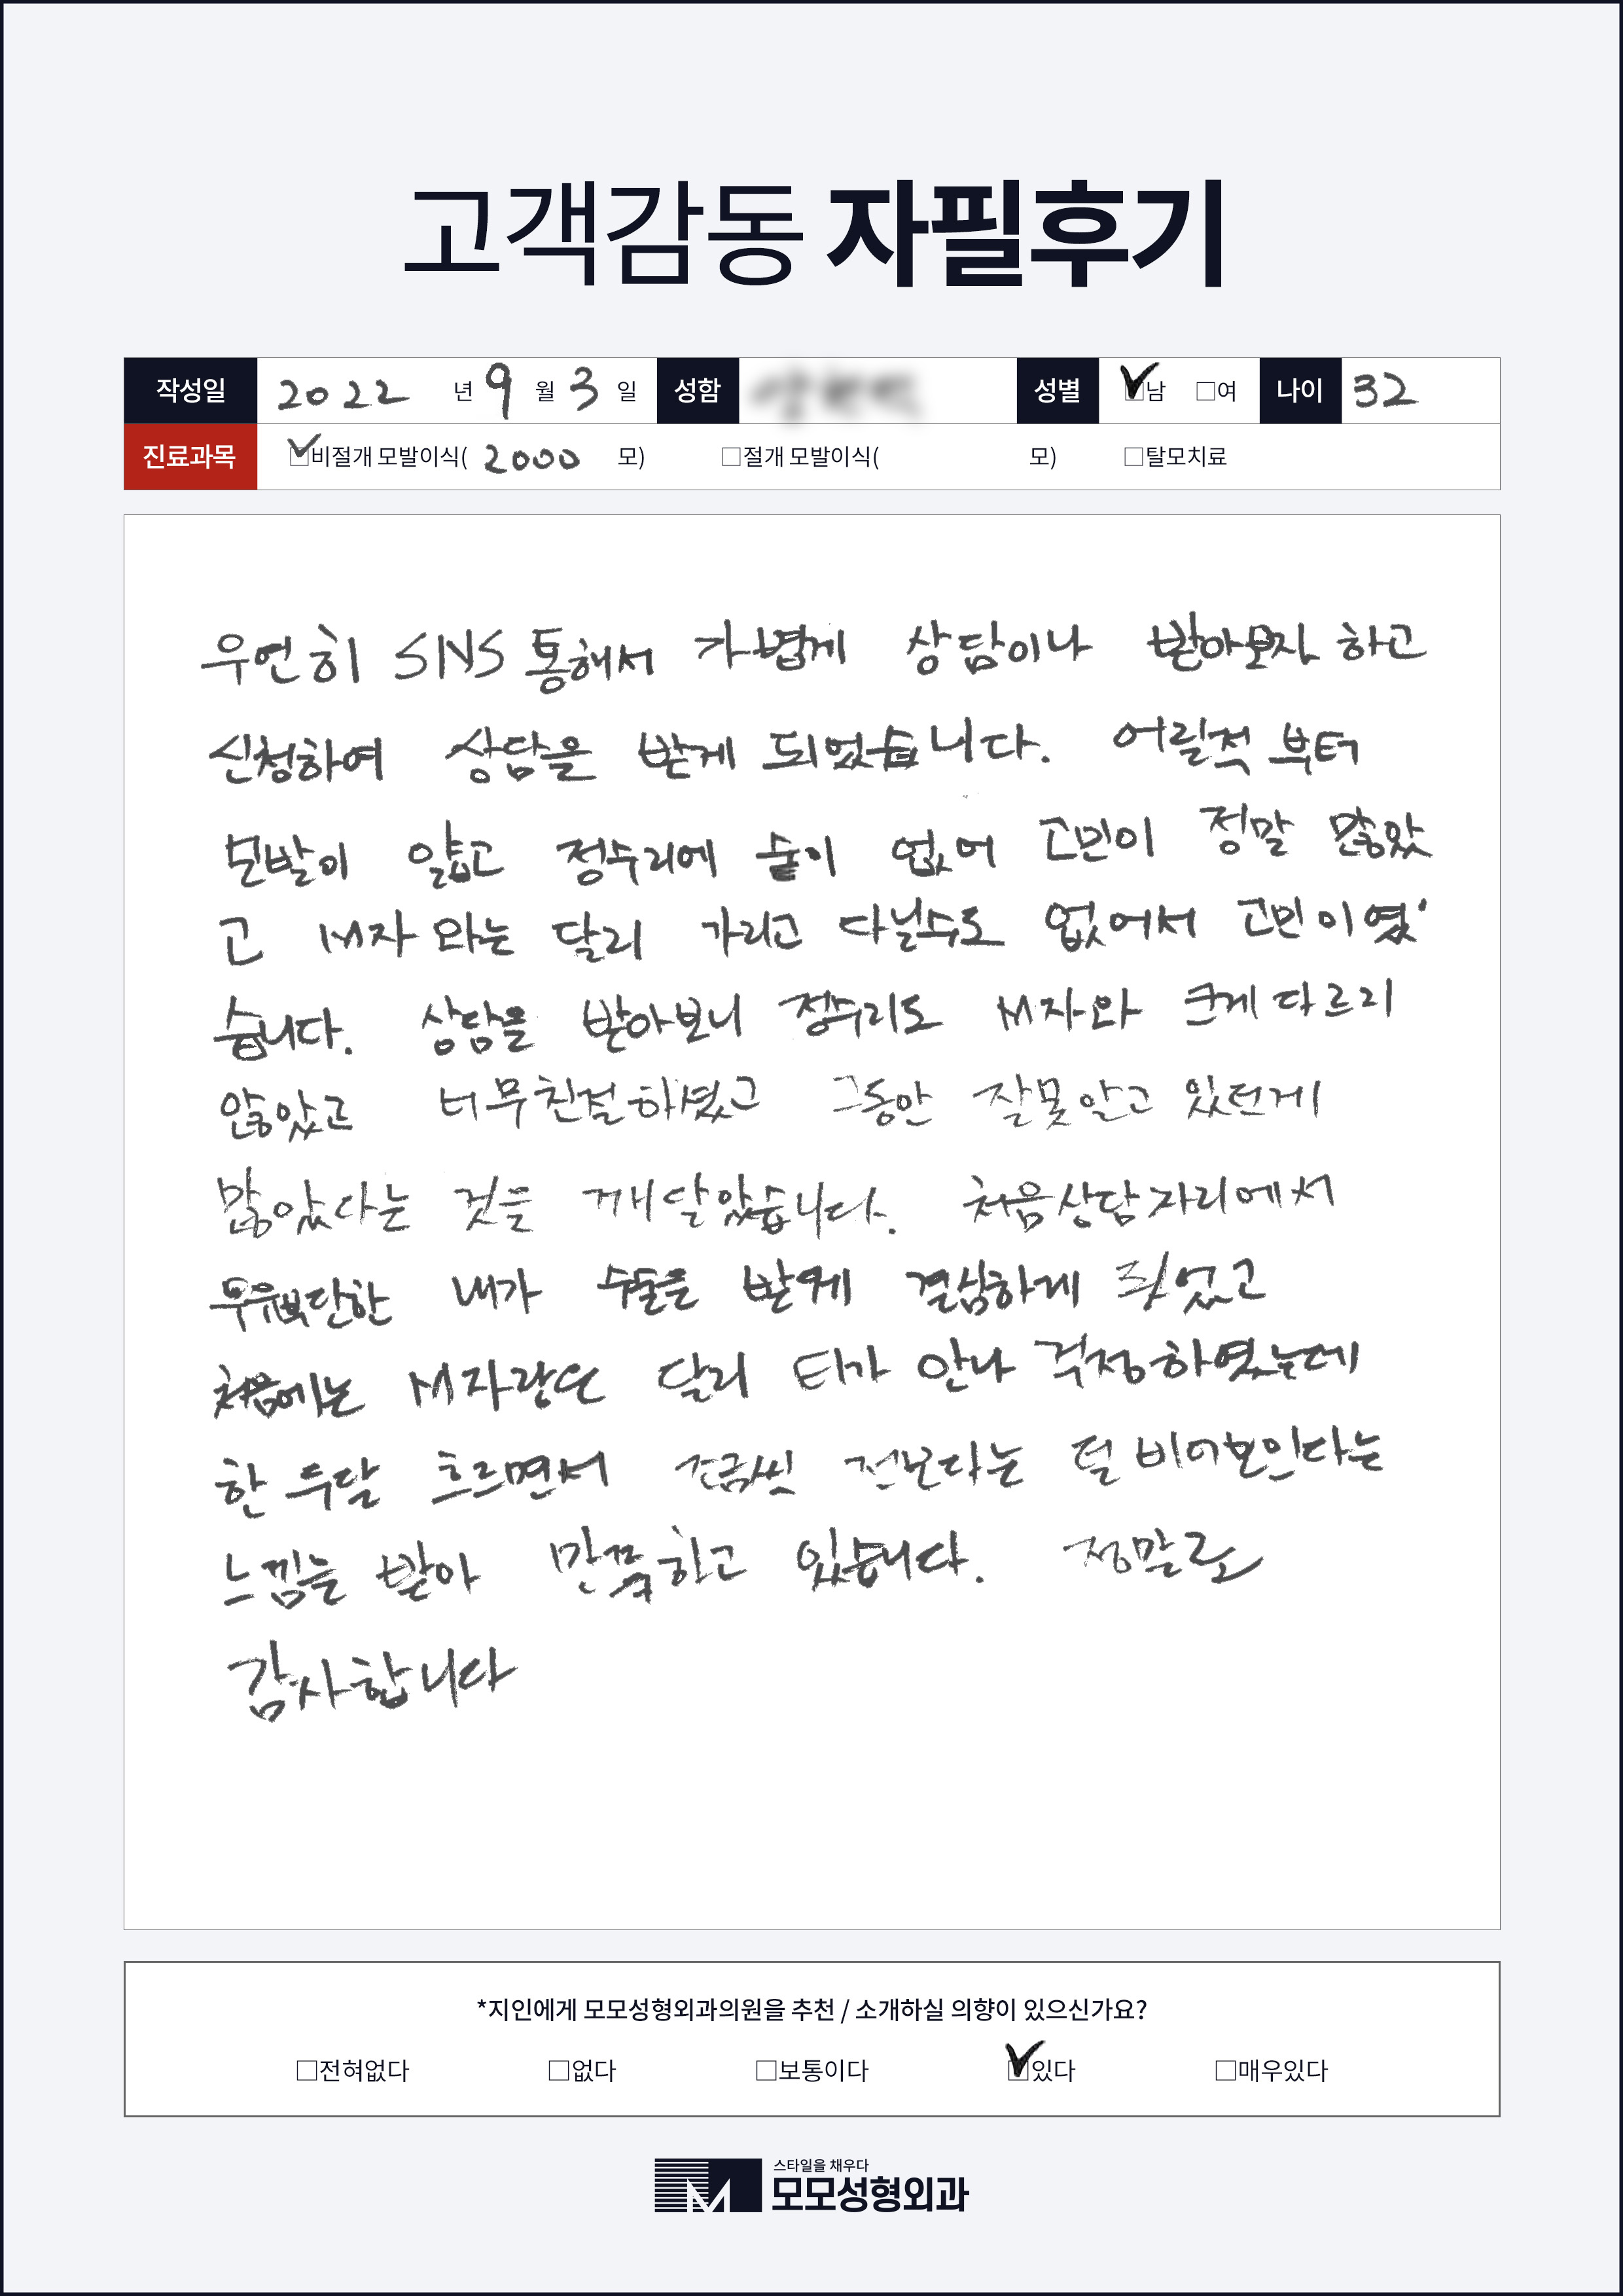 고객감동 자필후기
작성일 2022 년 9 월 3 일 성함 성별 ☑남 □여 나이 32
진료과목 ☑비절개 모발이식( 2000 모) □절개 모발이식( 모) □탈모치료
우연히 SNS 통해서 가볍게 상담이나 받아보자 하고
신청하여 상담을 받게 되었습니다. 어릴적 부터
모발이 얇고 정수리에 숱이 없어 고민이 정말 많았
고 M자 와는 달리 가리고 다닐수도 없어서 고민이였
습니다. 상담을 받아보니 정수리도 M자와 크게 다르리
않았고 너무친절하셨고 그동안 잘못알고 있던게
많았다는 것을 깨달았습니다. 처음상담자리에서
우유부단한 내가 수술을 받게 결심하게 됫었고
처음에는 M자랑은 달리 티가 안나 걱정하였는데
한 두달 흐르면서 조금씩 전보다는 덜 비어보인다는
느낌을 받아 만족하고 있습니다. 정말로
감사합니다
*지인에게 모모성형외과의원을 추천 / 소개하실 의향이 있으신가요?
□전혀없다 □없다 □보통이다 ☑있다 □매우있다
스타일을 채우다
M 모모성형외과